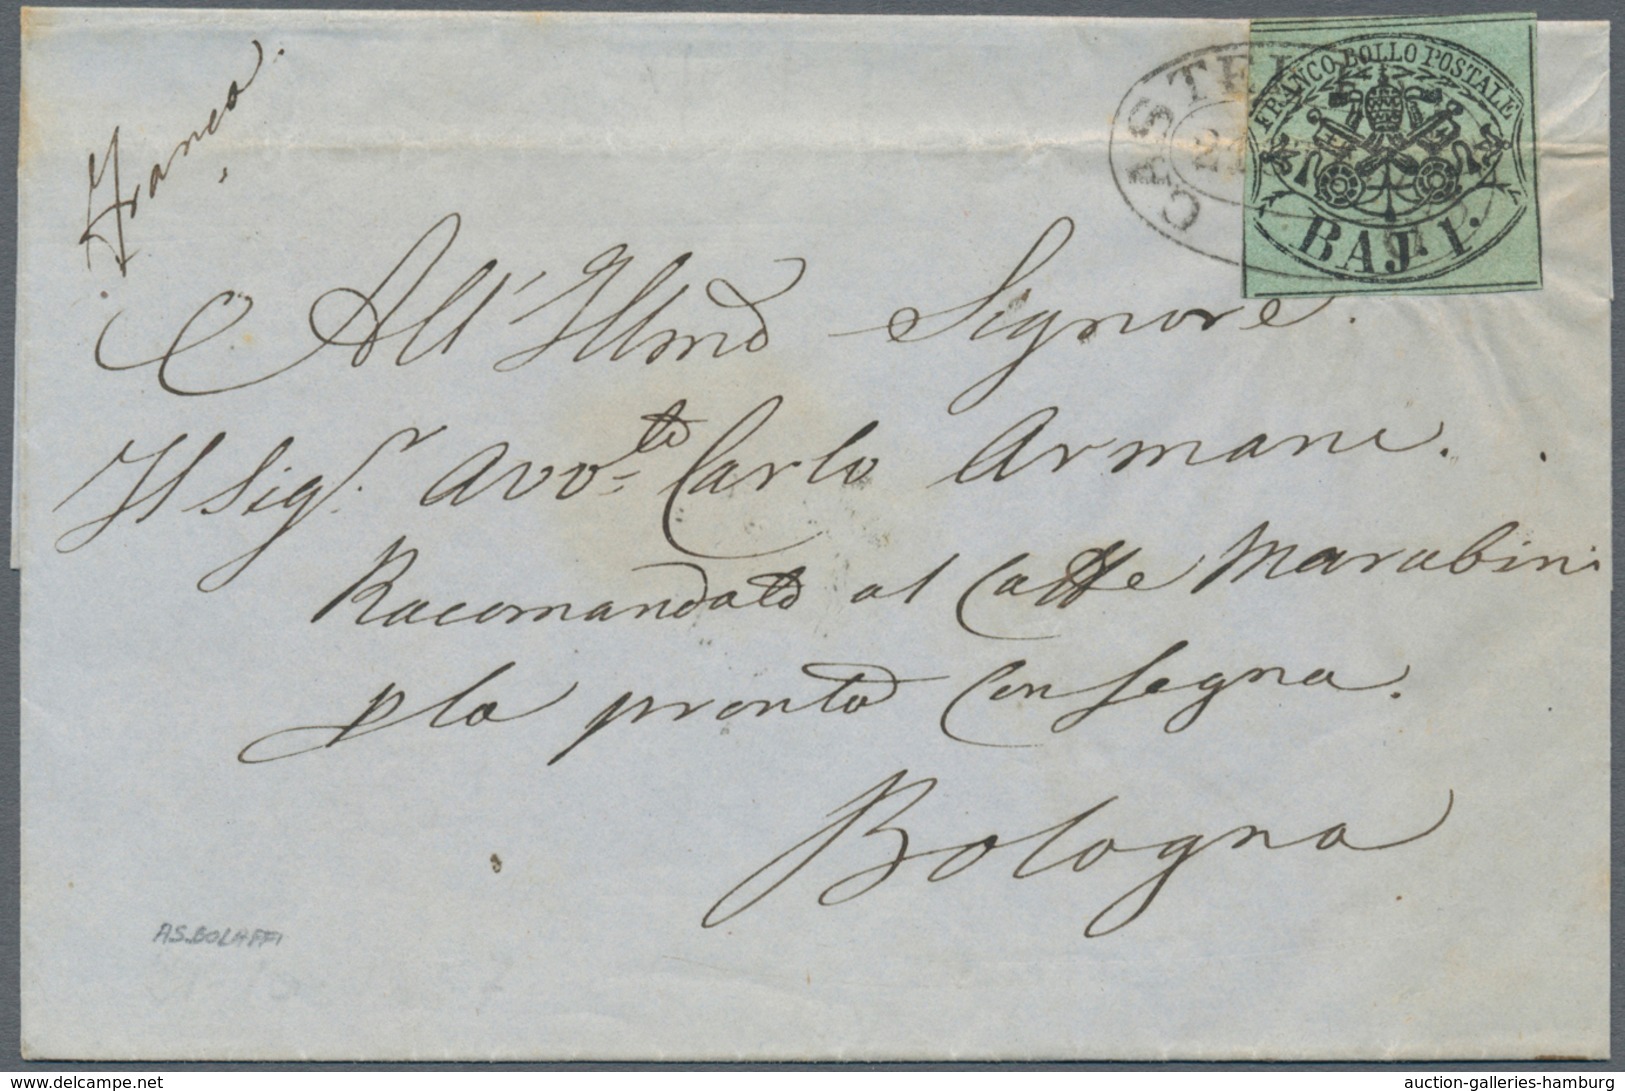 Franca
FRANCO BOLLO POSTALE
CASTEL
BAJ. 1.
All' Illmo Signore.
Il Sigr. Avvto Carlo Armani.
Racomandato al Caffe Marabini
p la pronta Consegna.
Bologna
A.S. BOLAFFI
www.delcampe.net
auction-galleries-hamburg